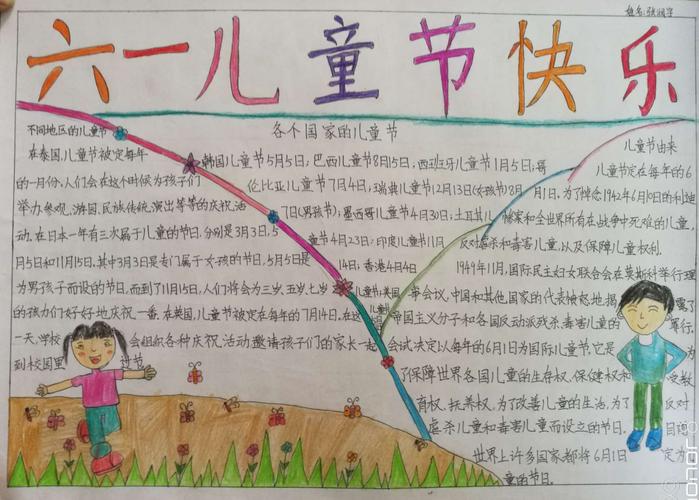 姓名:张润宇
六一儿童节快乐
不同地区的儿童节
在泰国,儿童节被定每年
的一月份,人们会在这个时候为孩子们
举办参观、游园、民族传统、演出等等的庆祝活
动。在日本一年有三次属于儿童的节日,分别是3月3日,5
月5日和11月15日。其中3月3日是专门属于女孩的节日,5月5日是
为男孩子而设的节日,而到了11月15日,人们将会为三岁、五岁、七岁
的孩力们好好地庆祝一番。在英国,儿童节被定在每年的7月14日,在这
一天,学校会组织各种庆祝活动,邀请孩子们的家长一起
到校园里过节
各个国家的儿童节
韩国儿童节5月5日;巴西儿童节8月15日;西班牙儿童节1月5日;哥
伦比亚儿童节7月4日;瑞典儿童节12月13日(女孩节)8月
7日(男孩节);墨西哥儿童节4月30日;土耳其儿
童节4月23日;印度儿童节11月
14日;香港4月4日
儿童节;美国
儿童节由来
儿童节定在每年的6
月1日。为了悼念1942年6月10日的利迪
惨案和全世界所有在战争中死难的儿童,
反对虐杀和毒害儿童,以及保障儿童权利.
1949年11月,国际民主妇女联合会在莫斯科举行理
事会议,中国和其他国家的代表愤怒地揭露了
帝国主义分子和各国反动派残杀、毒害儿童的罪行.
会试决定以每年的6月1日为国际儿童节。它是为
了保障世界各国儿童的生存权、保健权和受教
育权、抚养权,为了改善儿童的生活,为了反对
虐杀儿童和毒害儿童而设立的节日。目前
世界上许多国家都将6月1日定为
童的节日.